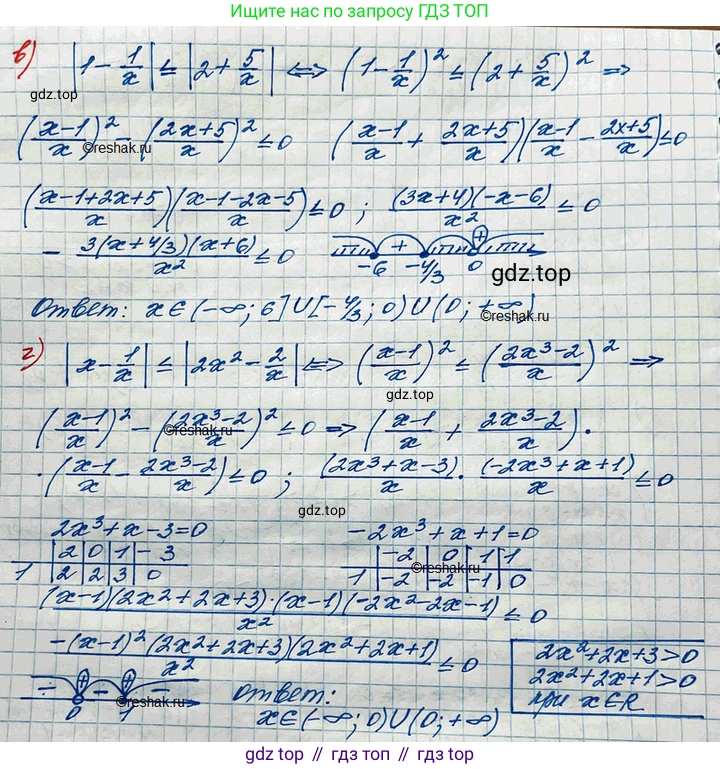 Ищите нас по запросу ГДЗ ТОП
в) |1 - 1/x| ≤ |2 + 5/x| ⟺ (1 - 1/x)² ≤ (2 + 5/x)² ⇒
gdz.top
((x-1)/x)² - ((2x+5)/x)² ≤ 0 ((x-1)/x + (2x+5)/x)((x-1)/x - (2x+5)/x) ≤ 0
©reshak.ru
((x-1+2x+5)/x)((x-1-2x-5)/x) ≤ 0 ; (3x+4)(-x-6)/x² ≤ 0
- 3(x+4/3)(x+6)/x² ≤ 0 + +
-6 -4/3 0
gdz.top
Ответ: x∈(-∞; 6]∪[-4/3; 0)∪(0; +∞)
©reshak.ru
г) |x - 1/x| ≤ |2x² - 2/x| ⟺ ((x-1)/x)² ≤ ((2x³-2)/x)² ⇒
gdz.top
((x-1)/x)² - ((2x³-2)/x)² ≤ 0 ⇒ ((x-1)/x + (2x³-2)/x) ·
©reshak.ru
· ((x-1)/x - (2x³-2)/x) ≤ 0 ; (2x³+x-3)/x · (-2x³+x+1)/x ≤ 0
gdz.top
2x³+x-3=0 -2x³+x+1=0
2 0 1 -3 -2 0 1 1
1 2 2 3 0 1 -2 -2 -1 0
©reshak.ru
(x-1)(2x²+2x+3)·(x-1)(-2x²-2x-1)/x² ≤ 0
-(x-1)²(2x²+2x+3)(2x²+2x+1)/x² ≤ 0
2x²+2x+3>0
2x²+2x+1>0
при x∈R
- - -
0 1
Ответ:
x∈(-∞; 0)∪(0; +∞)
gdz.top // гдз.топ // гдз топ